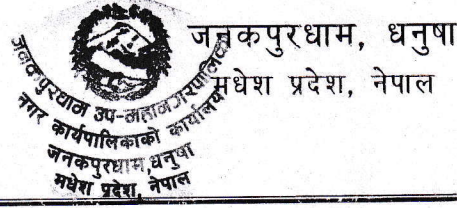 जनकपुरधाम, धनुषा
मधेश प्रदेश, नेपाल
जनकपुरधाम उप-महानगरपालिका
नगर कार्यपालिकाको कार्यालय
जनकपुरधाम,धनुषा
मधेश प्रदेश, नेपाल